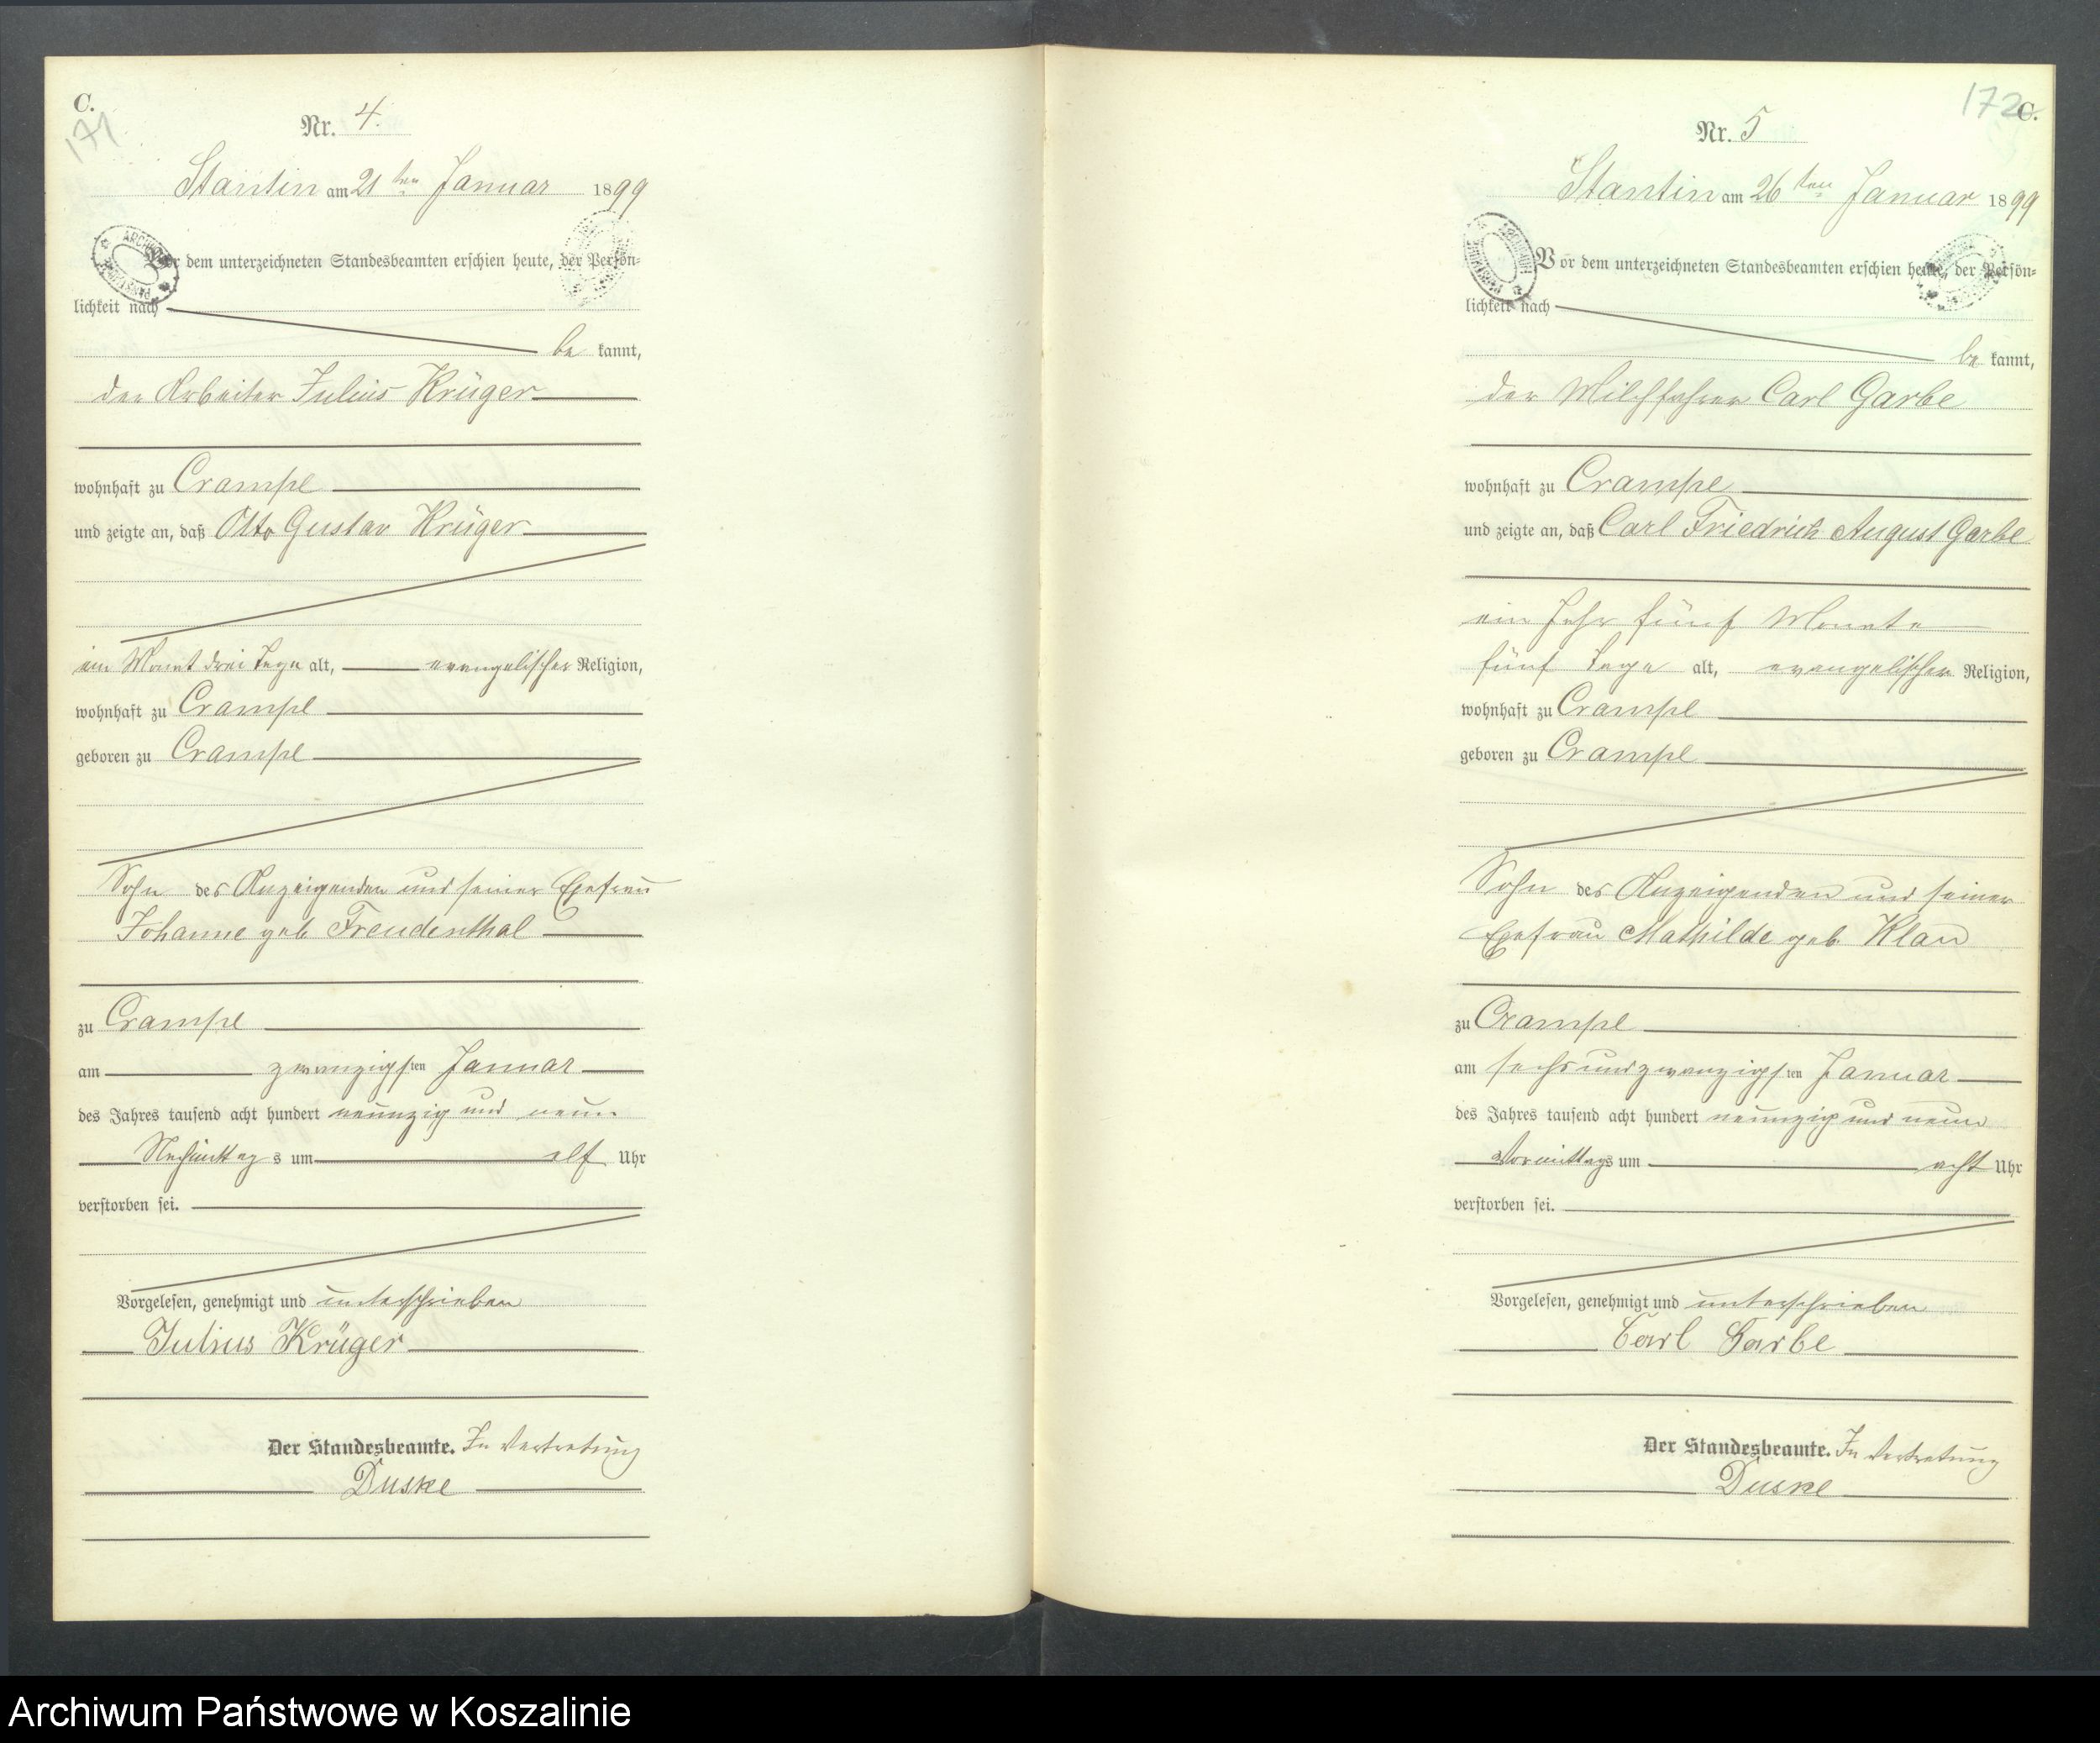 C.
171
Nr. 4.
Stantin am 21ten Januar 1899
Vor dem unterzeichneten Standesbeamten erschien heute, der Persön-
lichkeit nach
be kannt,
der Arbeiter Julius Krüger
wohnhaft zu Crampe
und zeigte an, daß Otto Gustav Krüger
ein Monat drei Tage alt, evangelischer Religion,
wohnhaft zu Crampe
geboren zu Crampe
Sohn des Anzeigenden und seiner Ehefrau
Johanne geb Freudenthal
zu Crampe
am zwanzigsten Januar
des Jahres tausend acht hundert neunzig und neun
Nachmittags um elf Uhr
verstorben sei.
Vorgelesen, genehmigt und unterschrieben
Julius Krüger
Der Standesbeamte. In Vertretung
Duske
172
C.
Nr. 5
Stantin am 26ten Januar 1899
Vor dem unterzeichneten Standesbeamten erschien heute, der Persön-
lichkeit nach
be kannt,
der Milchfahrer Carl Garbe
wohnhaft zu Crampe
und zeigte an, daß Carl Friedrich August Garbe
ein Jahr fünf Monate
fünf Tage alt, evangelischer Religion,
wohnhaft zu Crampe
geboren zu Crampe
Sohn des Anzeigenden und seiner
Ehefrau Mathilde geb Klan
zu Crampe
am sechsundzwanzigsten Januar
des Jahres tausend acht hundert neunzig und neun
Vormittags um acht Uhr
verstorben sei.
Vorgelesen, genehmigt und unterschrieben
Carl Garbe
Der Standesbeamte. In Vertretung
Duske
Archiwum Państwowe w Koszalinie